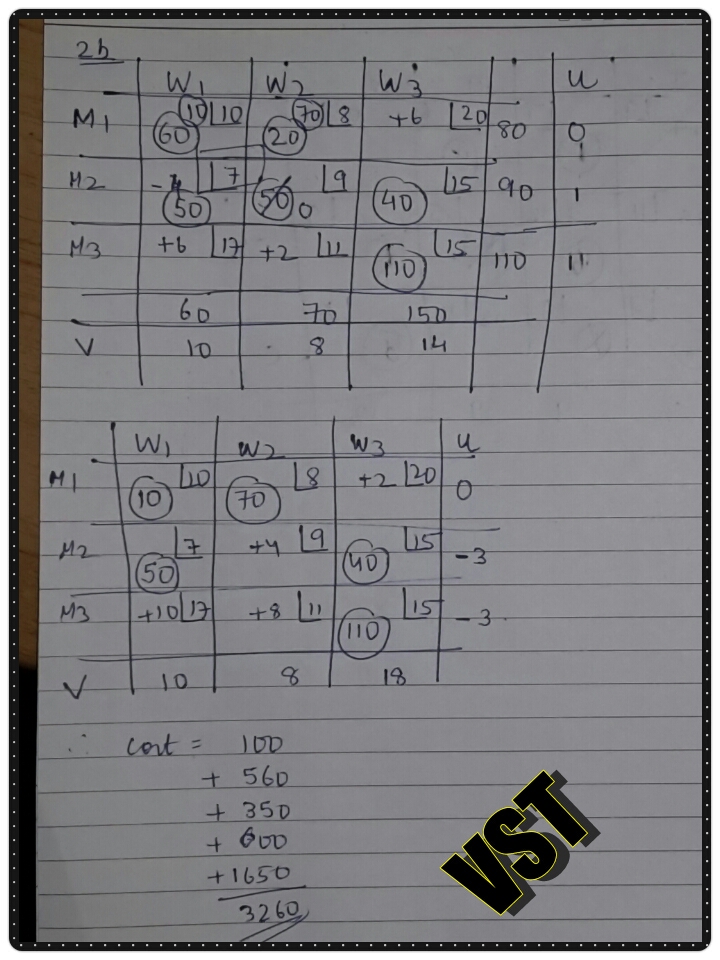 2b
W1 W2 W3 u
M1 60 10 10 20 70 8 +6 20 80 0
M2 50 7 50 0 9 40 15 90 1
M3 +6 17 +2 11 110 15 110
60 70 150
V 10 8 14
W1 W2 W3 u
M1 10 10 70 8 +2 20 0
M2 50 7 +4 9 40 15 -3
M3 +10 17 +8 11 110 15 -3
V 10 8 18
∴ cost = 100
+ 560
+ 350
+ 600
+1650
3260
VST